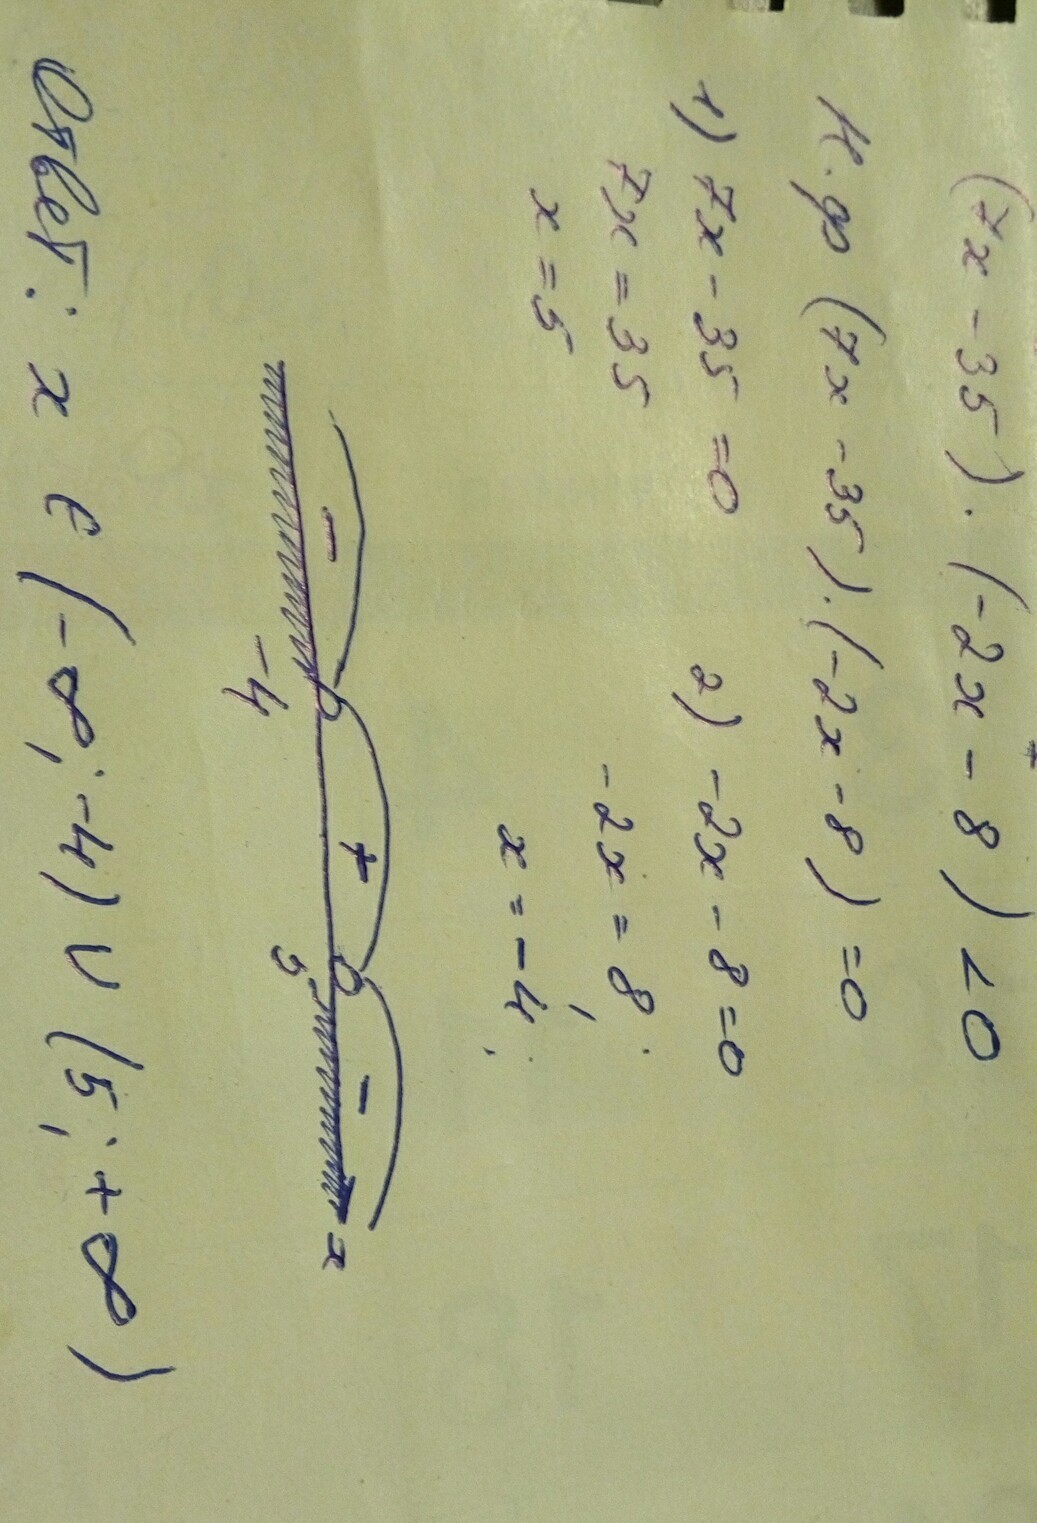 (7x - 35) · (-2x - 8) < 0
Н.ф (7x - 35) · (-2x - 8) = 0
1) 7x - 35 = 0 2) -2x - 8 = 0
7x = 35 -2x = 8;
x = 5 x = -4;
- + -
-4 5 x
Ответ: x ∈ (-∞; -4) ∪ (5; +∞)